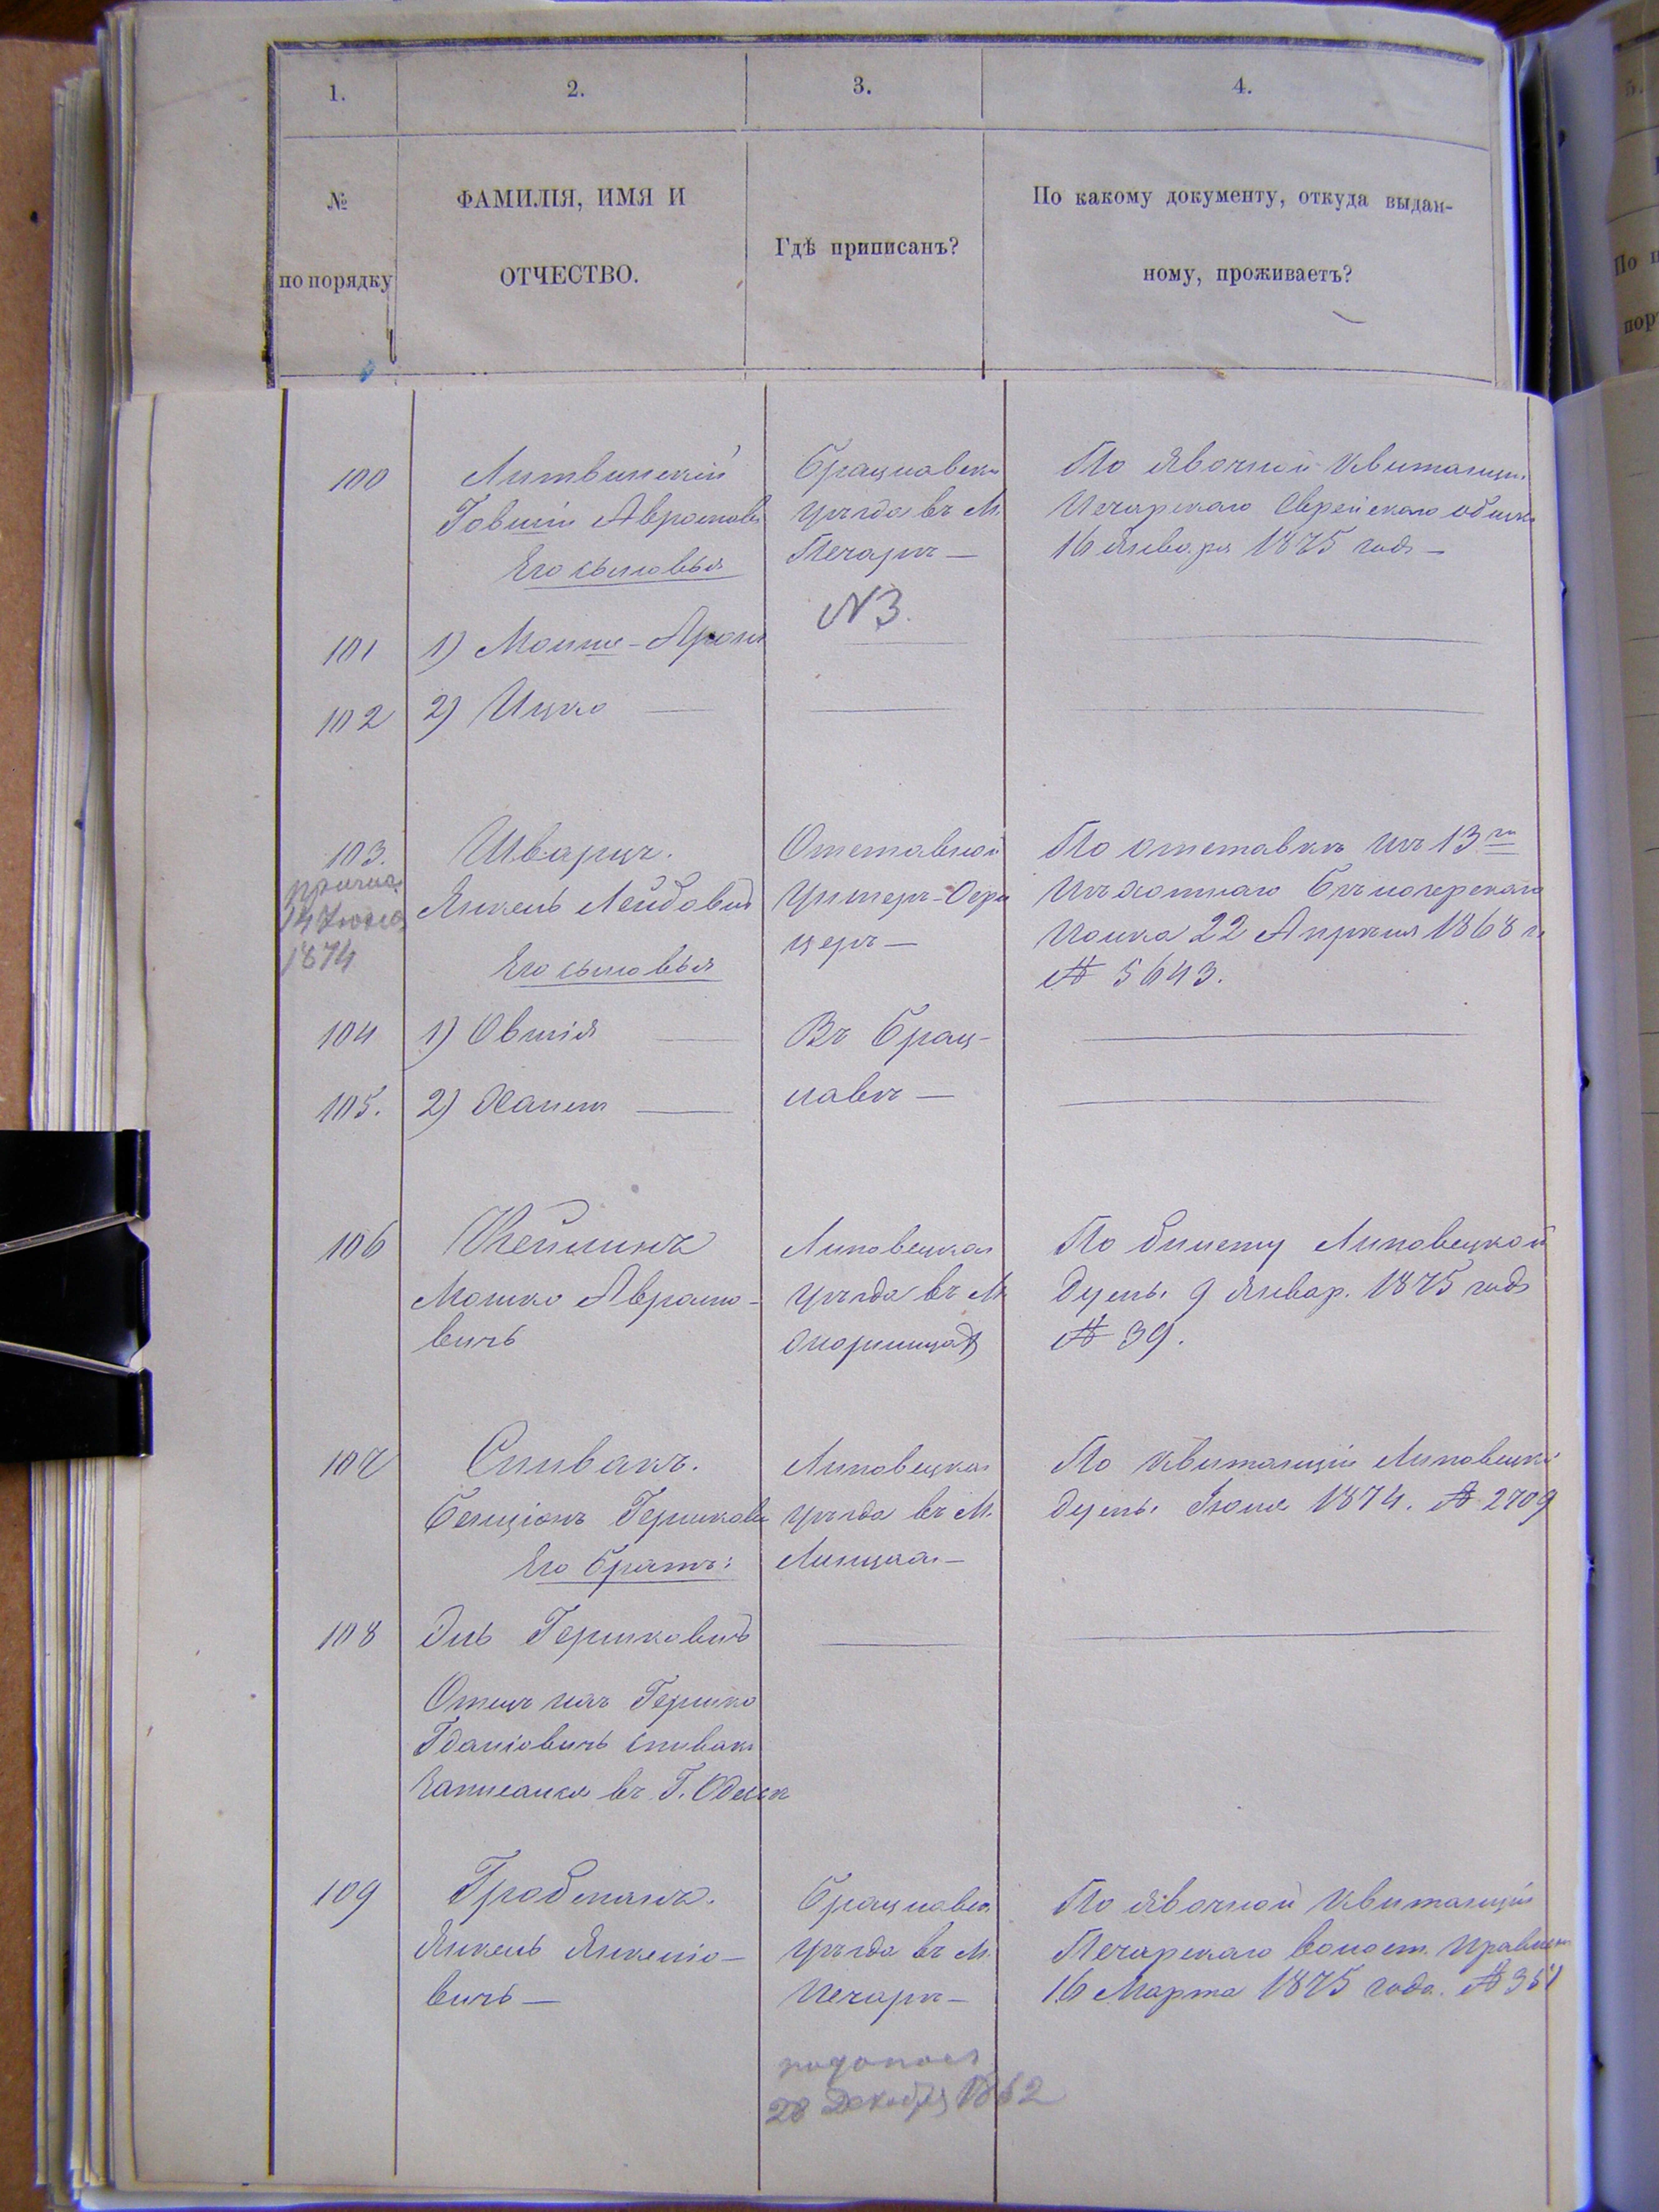 1. 2. 3. 4.
№
по порядку
ФАМИЛІЯ, ИМЯ И
ОТЧЕСТВО.
Гдѣ приписанъ?
По какому документу, откуда выдан-
ному, проживаетъ?
100
Литвинскій
Іовшій Аврамов
Его сыновья
Брацлавск
уѣзда въ М.
Печарѣ —
По явочной квитанціи
Печарскаго Еврейскаго общес
16 Января 1875 года —
N3.
101 1) Мошке-Аронъ
102 2) Ицко
103.
14 Іюля
1874
Шварцъ.
Янкель Лейбовичъ
Его сыновья
Отставной
Унтеръ-Офи
церъ —
По отставкѣ изъ 13го
Пѣхотнаго Бѣлозерскаго
Полка 22 Апрѣля 1868 г.
№ 5643.
104 1) Овшія
Въ Брац-
105. 2)
лавѣ —
106
Клейманъ
Мошко Аврамо-
вичъ
Липовецкаго
уѣзда въ М.
По билету Липовецкой
Думы 9 Январ. 1875 года
№ 39.
107
Спивакъ.
Бенціонъ Гершкови
Его братъ:
Липовецкаго
уѣзда въ М.
Линцахъ —
По квитанціи Липовецкой
Думы Іюня 1874. № 2709
108
Эль Гершковичъ
Отецъ ихъ Гершко
Спивакъ
Записанся въ Г. Одессѣ
109
Гробманъ.
Янкель Янкеліо-
вичъ —
Брацлавск
уѣзда въ М.
Печарѣ —
По явочной квитанціи
Печарскаго волост. правлен
16 Марта 1875 года. № 351
родился
28 Декабря 1852